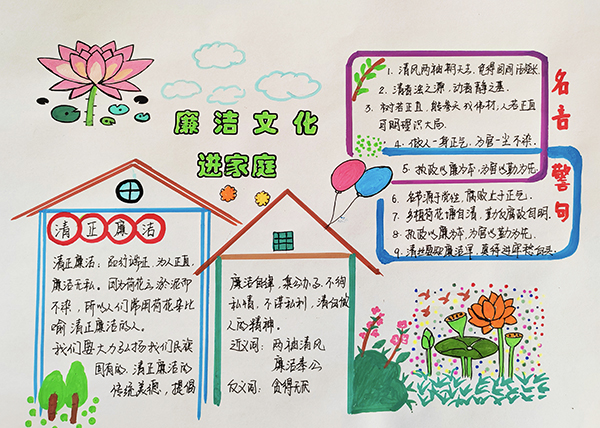 廉洁文化
进家庭
清正廉洁
清正廉洁，品行端正，为人正直，
廉洁无私。因为荷花的淤泥而
不染，所以人们常用荷花来比
喻清正廉洁的人。
我们要大力弘扬我们民族
固有的清正廉洁的
传统美德，提倡
廉洁自律，秉公办事，不徇
私情，不谋私利，清白做
人的精神。
近义词：两袖清风
廉洁奉公
反义词：贪得无厌
名言
警句
1. 清风两袖朝天去，免得闾阎话短长。
2. 清者浊之源，动者静之基。
3. 树若正直，能参天成伟材，人若正直
可明理识大局。
4. 做人一身正气，为官一尘不染。
5. 执政以廉为本，为官以勤为先。
6. 名节源于党性，腐败止于正气。
7. 乡植荷花塘自清，勤反腐政自明。
8. 执政以廉为本，为官以勤为先。
9. 清